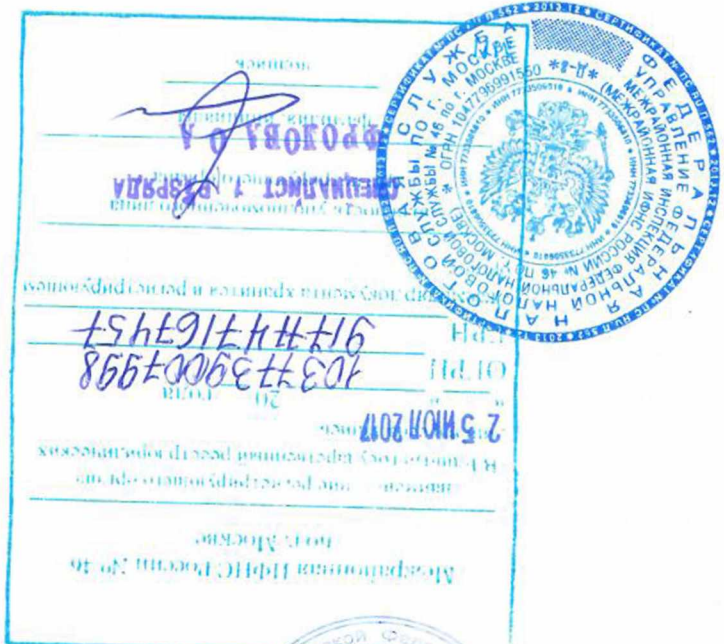 Межрайонная ИФНС России № 46
по г. Москве
наименование регистрирующего органа
В Единый государственный реестр юридических
25 ИЮЛ 2017
20 года
ОГРН 1037739007998
ГРН 9177747167457
документа хранится в регистрирующем
должность уполномоченного лица
СПЕЦИАЛИСТ 1 РАЗРЯДА
ФРОЛОВА О А
фамилия, инициалы
подпись
ФЕДЕРАЛЬНАЯ НАЛОГОВАЯ СЛУЖБА
УПРАВЛЕНИЕ ФЕДЕРАЛЬНОЙ НАЛОГОВОЙ СЛУЖБЫ ПО Г. МОСКВЕ
МЕЖРАЙОННАЯ ИНСПЕКЦИЯ ФЕДЕРАЛЬНОЙ НАЛОГОВОЙ СЛУЖБЫ № 46 по г. МОСКВЕ
(МЕЖРАЙОННАЯ ИФНС РОССИИ № 46 ПО Г. МОСКВЕ) * ОГРН 1047796991550 *Д-8*